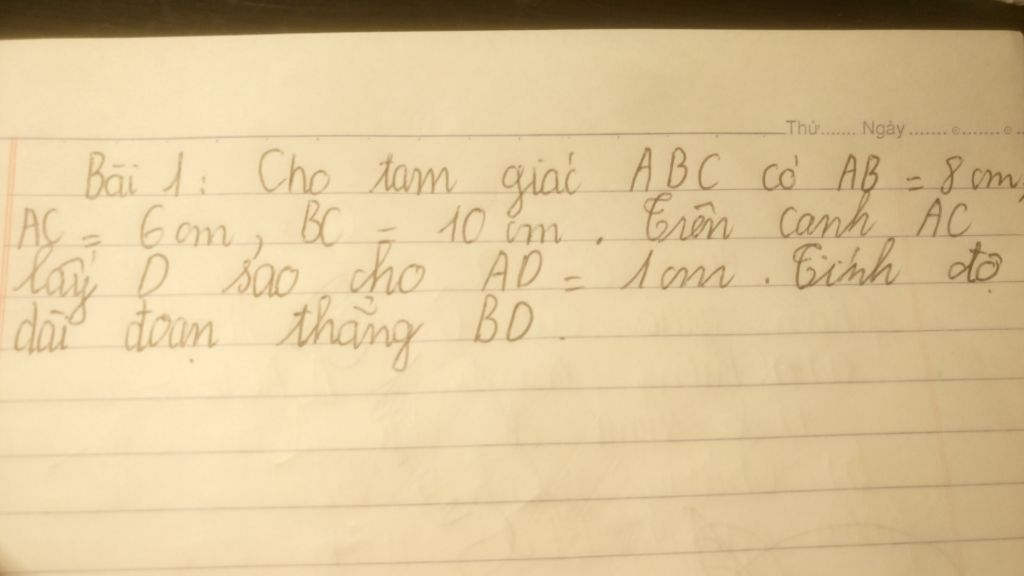 Thứ....... Ngày .......
Bài 1: Cho tam giác ABC có AB = 8 cm,
AC = 6 cm, BC = 10 cm. Trên cạnh AC
lấy D sao cho AD = 1 cm. Tính độ
dài đoạn thẳng BD.